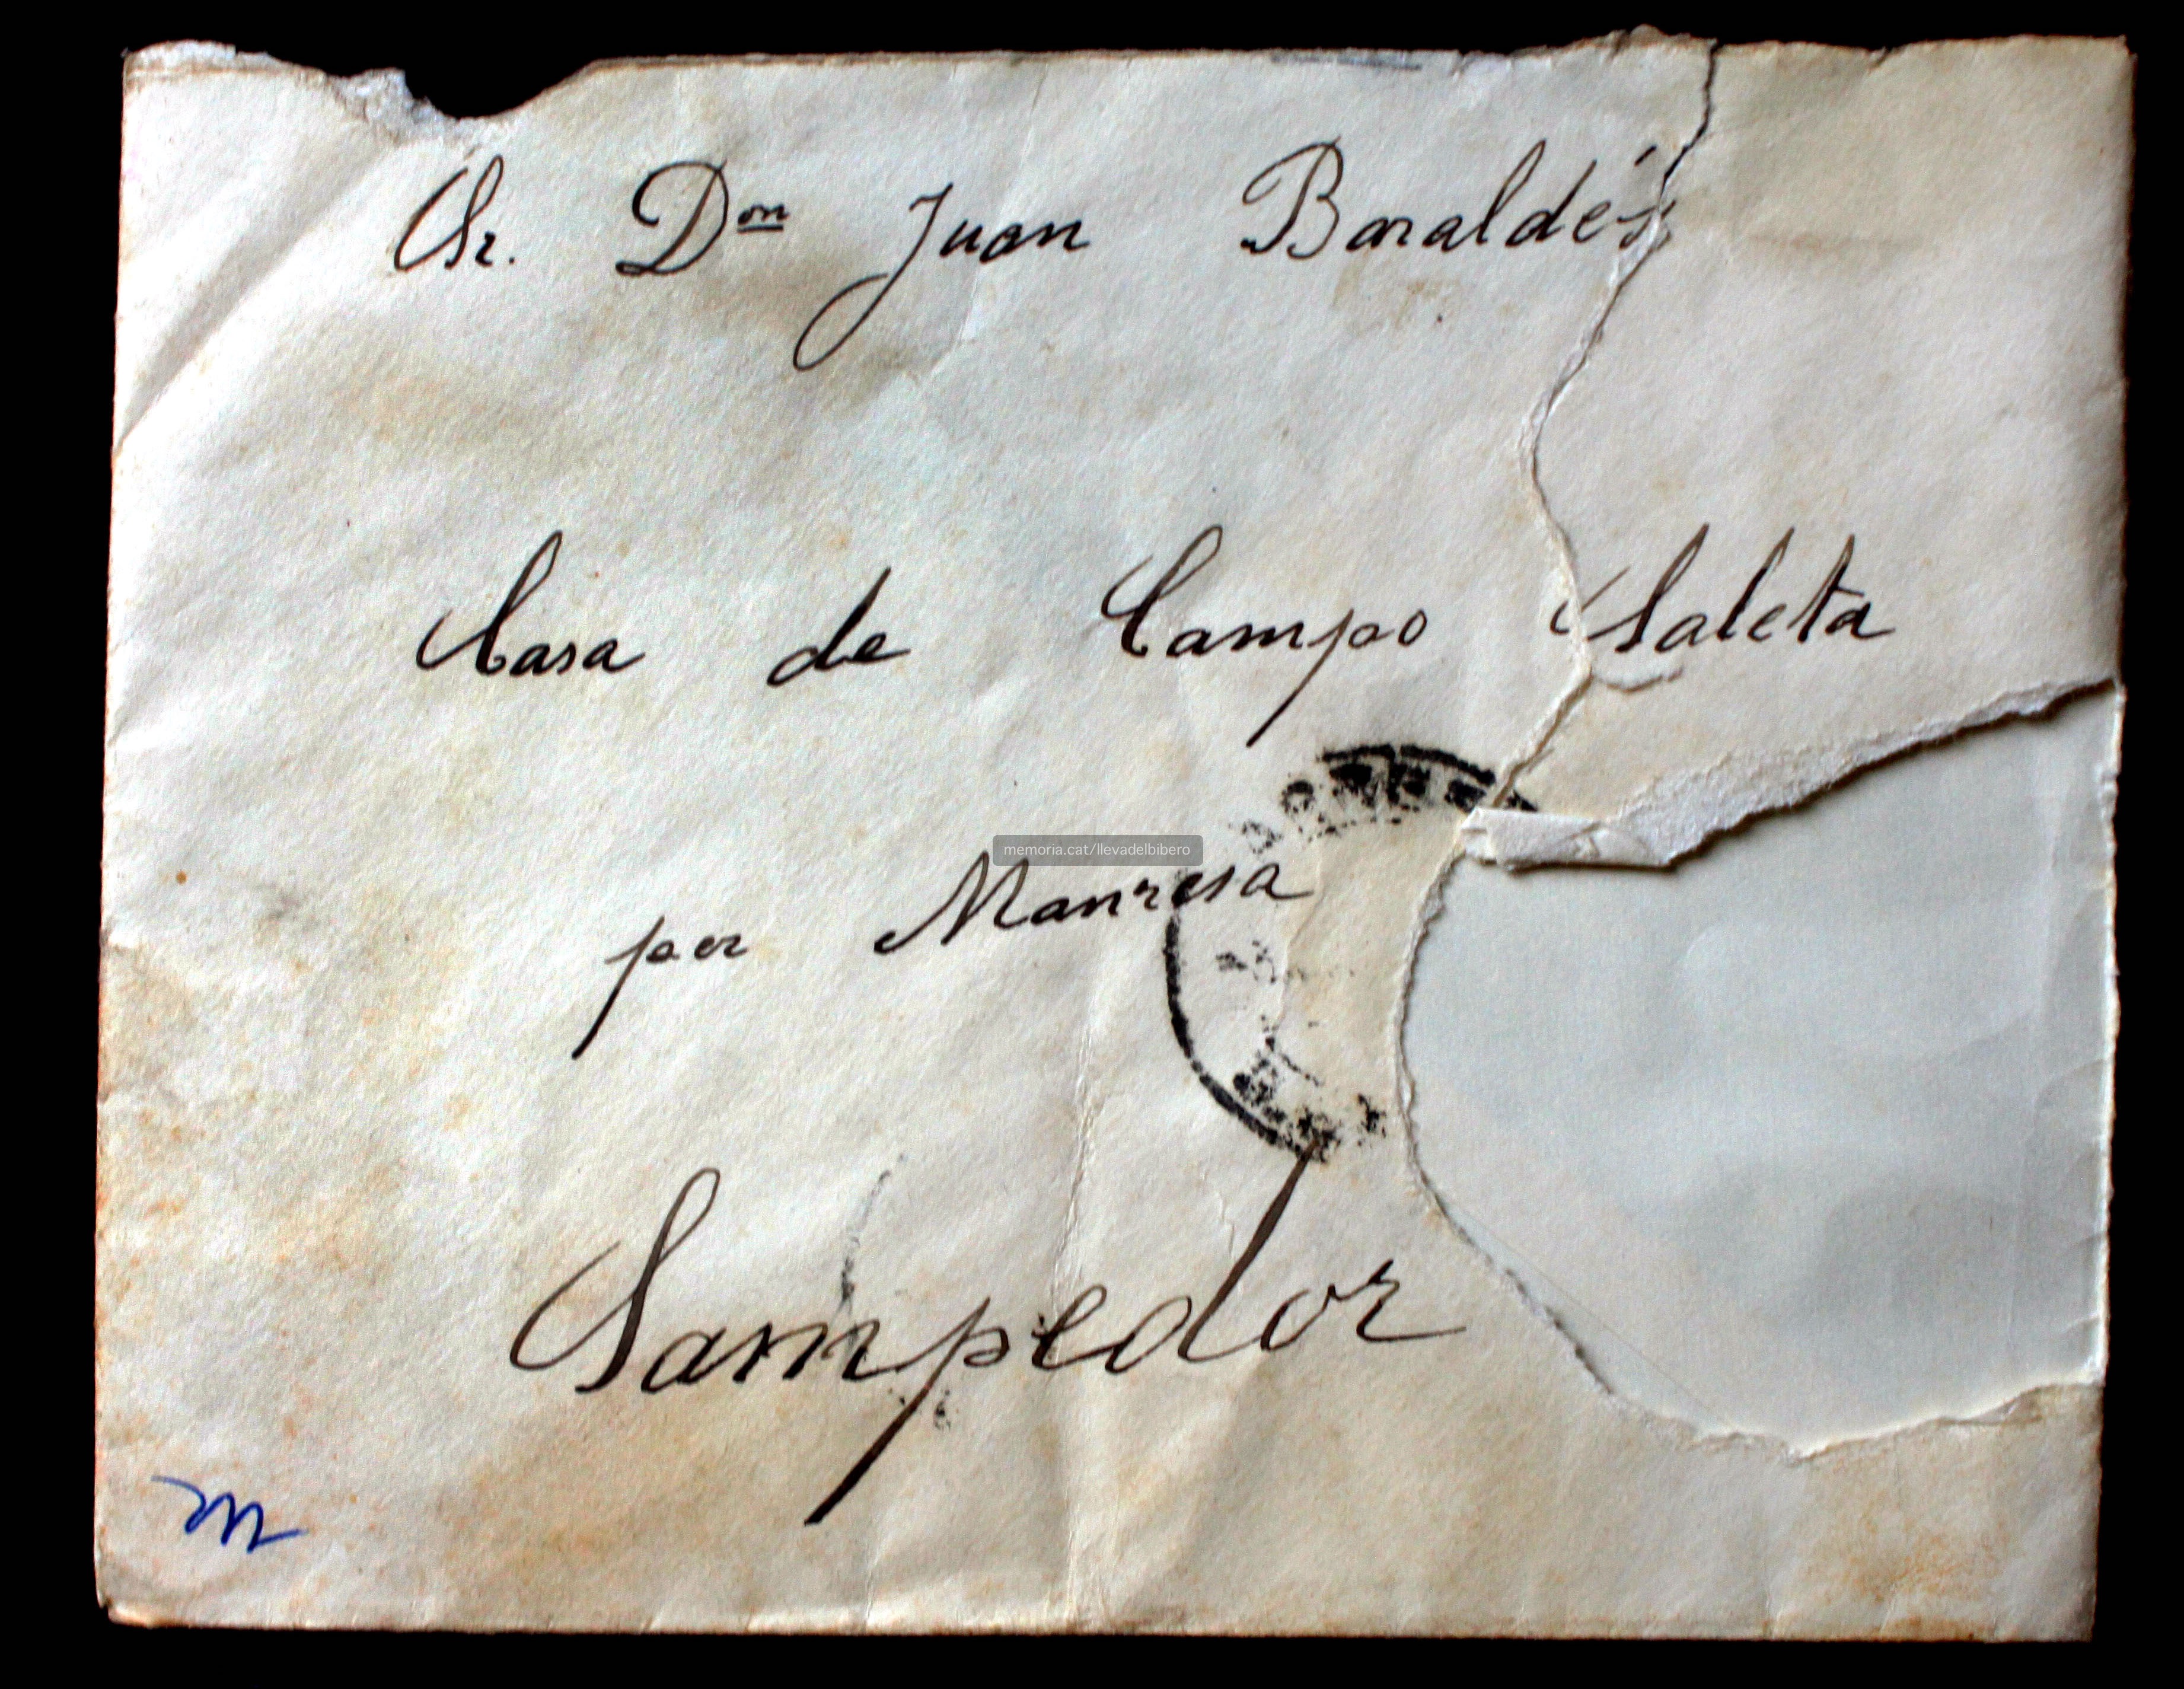 Sr. Dᵒⁿ Juan Baraldés
Casa de Campo Saleta
memoria.cat/llevadelbibero
por Manresa
Sampedor
m